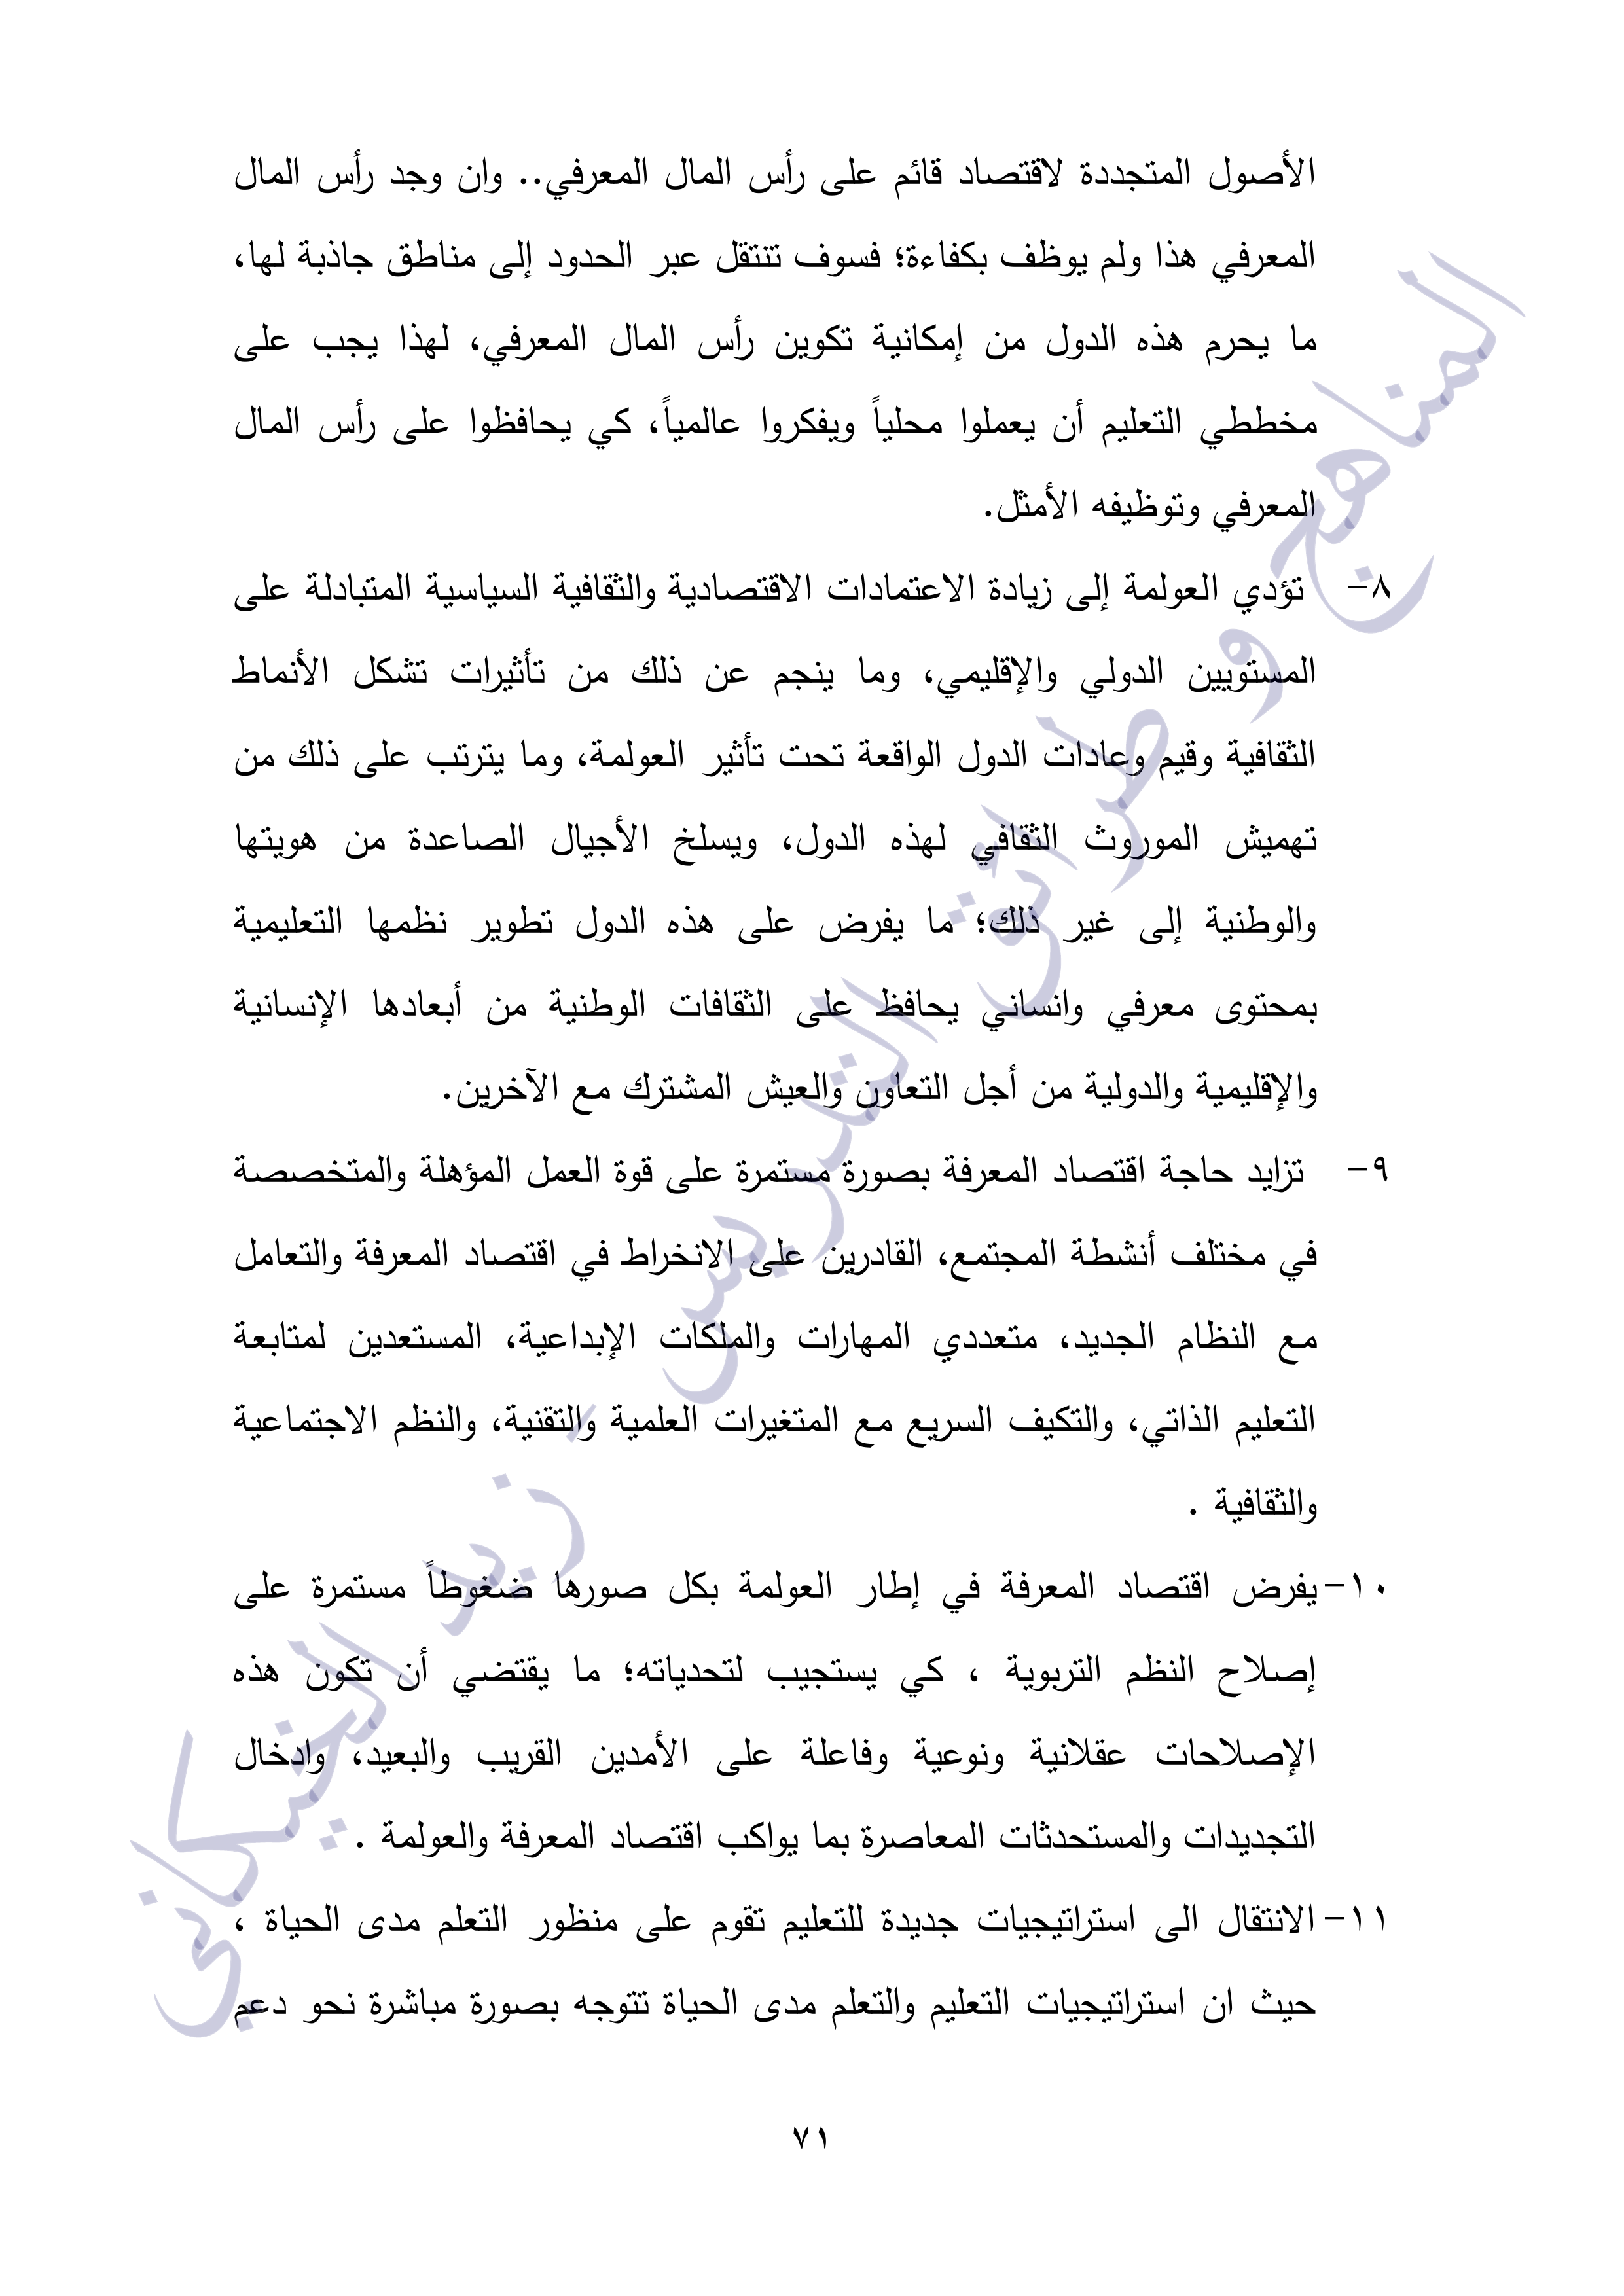 الأصول المتجددة لاقتصاد قائم على رأس المال المعرفي.. وان وجد رأس المال
المعرفي هذا ولم يوظف بكفاءة؛ فسوف تنتقل عبر الحدود إلى مناطق جاذبة لها،
ما يحرم هذه الدول من إمكانية تكوين رأس المال المعرفي، لهذا يجب على
مخططي التعليم أن يعملوا محلياً ويفكروا عالمياً، كي يحافظوا على رأس المال
المعرفي وتوظيفه الأمثل.
٨- تؤدي العولمة إلى زيادة الاعتمادات الاقتصادية والثقافية السياسية المتبادلة على
المستويين الدولي والإقليمي، وما ينجم عن ذلك من تأثيرات تشكل الأنماط
الثقافية وقيم وعادات الدول الواقعة تحت تأثير العولمة، وما يترتب على ذلك من
تهميش الموروث الثقافي لهذه الدول، ويسلخ الأجيال الصاعدة من هويتها
والوطنية إلى غير ذلك؛ ما يفرض على هذه الدول تطوير نظمها التعليمية
بمحتوى معرفي وانساني يحافظ على الثقافات الوطنية من أبعادها الإنسانية
والإقليمية والدولية من أجل التعاون والعيش المشترك مع الآخرين.
٩- تزايد حاجة اقتصاد المعرفة بصورة مستمرة على قوة العمل المؤهلة والمتخصصة
في مختلف أنشطة المجتمع، القادرين على الانخراط في اقتصاد المعرفة والتعامل
مع النظام الجديد، متعددي المهارات والملكات الإبداعية، المستعدين لمتابعة
التعليم الذاتي، والتكيف السريع مع المتغيرات العلمية والتقنية، والنظم الاجتماعية
والثقافية .
١٠- يفرض اقتصاد المعرفة في إطار العولمة بكل صورها ضغوطاً مستمرة على
إصلاح النظم التربوية ، كي يستجيب لتحدياته؛ ما يقتضي أن تكون هذه
الإصلاحات عقلانية ونوعية وفاعلة على الأمدين القريب والبعيد، وادخال
التجديدات والمستحدثات المعاصرة بما يواكب اقتصاد المعرفة والعولمة .
١١- الانتقال الى استراتيجيات جديدة للتعليم تقوم على منظور التعلم مدى الحياة ،
حيث ان استراتيجيات التعليم والتعلم مدى الحياة تتوجه بصورة مباشرة نحو دعم
٧١
المناهج و طرائق التدريس - زيد الخيكاني